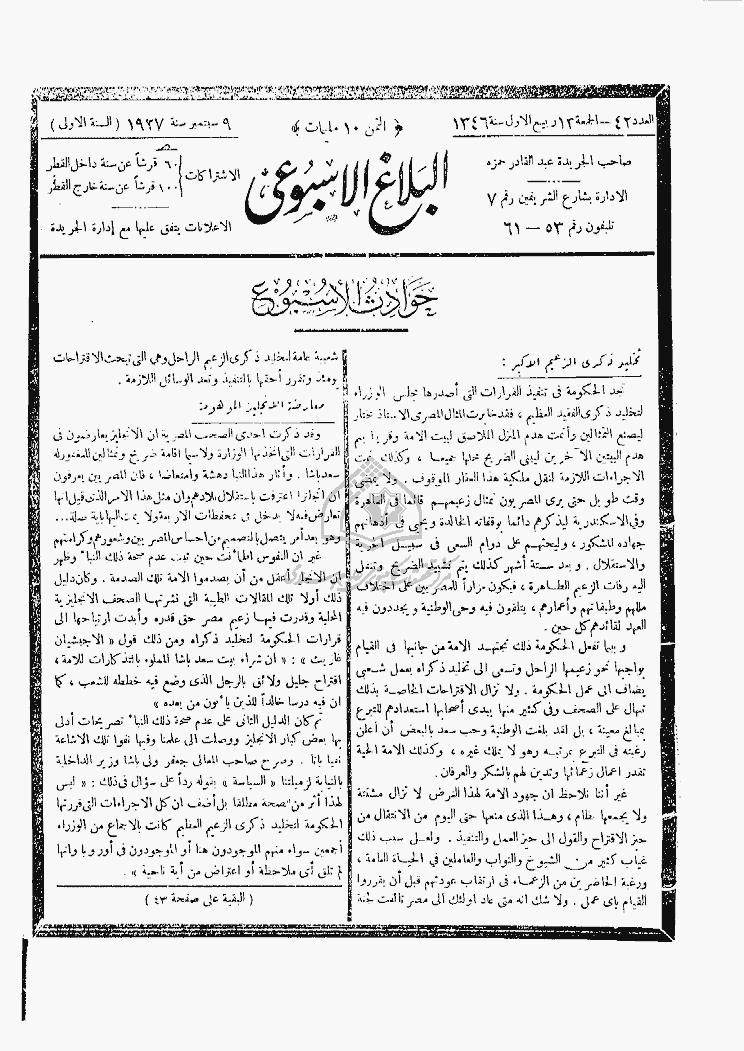 العدد ٤٢ – الجمعة ١٣ ربيع الاول سنة ١٣٤٦
﴿ الثمن ١٠ مليات ﴾
٩ سبتمبر سنة ١٩٢٧ ( السنة الاولى )
صاحب الجريدة عبد القادر حمزه
الادارة بشارع الشريفين رقم ٧
تليفون رقم ٥٣ – ٦١
البلاغ الاسبوعى
الاشتراكات
٦٠ قرشاً عن سنة داخل القطر
١٠٠ قرشاً عن سنة خارج القطر
الاعلانات يتفق عليها مع إدارة الجريدة
حوادث الاسبوع
تخليد ذكرى الزعيم الاكبر :
تجد الحكومة فى تنفيذ القرارات التى أصدرها مجلس الوزراء
لتخليد ذكرى الفقيد العظيم ، فقد خابرت المثال المصرى الاستاذ مختار
ليصنع التمثالين وأتمت هدم المنزل الملاصق لبيت الامة وقريبا يتم
هدم البيتين الآخرين ليبنى الضريح محلها جميعا ، وكذلك تمت
الاجراءات اللازمة لنقل ملكية هذا العقار الموقوف . ولا يمضى
وقت طويل حتى يرى المصريون تمثال زعيمهم قائما فى القاهرة
وفى الاسكندرية ليذكرهم دائما بوقفاته الخالدة ويحيى فى أذهانهم
جهاده المشكور ، وليحثهم على دوام السعى فى سبيل الحرية
والاستقلال . وبعد ستة أشهر كذلك يتم تشييد الضريح وتنقل
اليه رفات الزعيم الطاهرة ، فيكون مزاراً للمصريين على اختلاف
مللهم وطبقاتهم وأعمارهم ، يتلقون فيه وحى الوطنية ويجددون فيه
العهد لقائدهم كل حين .
و بينما تفعل الحكومة ذلك تجتهد الامة من جانبها فى القيام
بواجبها نحو زعيمها الراحل وتسعى الى تخليد ذكراه بعمل شعبى
يضاف الى عمل الحكومة . ولا تزال الاقتراحات الخاصة بذلك
تنهال على الصحف وفى كثير منها يبدى أصحابها استعدادهم للتبرع
بمبالغ معينة ، بل لقد بلغت الوطنية وحب سعد بالبعض أن أعلن
رغبته فى التبرع بمرتبه وهو لا يملك غيره ، وكذلك الامة الحية
تقدر اعمال زعمائها وتدين لهم بالشكر والعرفان .
غير أننا نلاحظ ان جهود الامة لهذا الغرض لا تزال مشتتة
ولا يجمعها نظام ، وهذا الذى منعها حتى اليوم من الانتقال من
حيز الاقتراح والقول الى حيز العمل والتنفيذ . ولعل سبب ذلك
غياب كثير من الشيوخ والنواب والعاملين فى الحياة العامة ،
ورغبة الحاضرين من الزعماء فى ارتقاب عودتهم قبل أن يقرروا
القيام بأى عمل . ولا شك انه متى عاد اولئك الى مصر تألفت لجنة
شعبية عامة لتخليد ذكرى الزعيم الراحل وهى التى تبحث الاقتراحات
يومئذ وتقرر أحقها بالتنفيذ وتعد الوسائل اللازمة .
معارضة الانجليز الموهومة
وقد ذكرت احدى الصحف المصرية ان الانجليز يعارضون فى
القرارات التى اتخذتها الوزارة ولاسيما اقامة ضريح وتمثالين للمغفورله
سعد باشا . وأثار هذا النبأ دهشة وامتعاضا ، فان المصريين يعرفون
ان انجلترا اعترفت باستقلال بلادهم وان مثل هذا الامر الذى قيل انها
تعارض فيه لا يدخل فى تحفظات الاربعة ولا يمت اليها باية صلة...
وهو بعد أمر يتصل بالتصميم من احساس المصريين وشعورهم وكرامتهم
غير ان النفوس اطمأنت حين تبينت عدم صحة ذلك النبأ وظهر
ان الانجليز أعقل من أن يصدموا الامة تلك الصدمة . وكان دليل
ذلك أولا تلك المقالات الطيبة التى نشرتها الصحف الانجليزية
المحلية وقدرت فيها زعيم مصر حق قدره وأبدت ارتياحها الى
قرارات الحكومة لتخليد ذكراه ومن ذلك قول « الاجبشيان
غازيت » : « ان شراء بيت سعد باشا المملوء بالتذكارات للامة ،
اقتراح جليل ولائق بالرجل الذى وضع فيه خططه للشعب ، كما
ان فيه درسا خالداً للذين يأتون من بعده »
ثم كان الدليل الثانى على عدم صحة ذلك النبأ تصريحات أدلى
بها بعض كبار الانجليز ووصلت الى علمنا وفيها نفوا تلك الاشاعة
نفيا باتا . وصرح صاحب المعالى جعفر ولى باشا وزير الداخلية
بالنيابة لزميلتنا « السياسة » بقوله رداً على سؤال فى ذلك : « ليس
لهذا أثر من الصحة مطلقا بل أضف ان كل الاجراءات التى قررتها
الحكومة لتخليد ذكرى الزعيم العظيم كانت بالاجماع من الوزراء
أجمعين سواء منهم الموجودون هنا أو الموجودون فى أوروبا وانها
لم تلق أى ملاحظة أو اعتراض من أية ناحية » .
( البقية على صفحة ٤٣ )